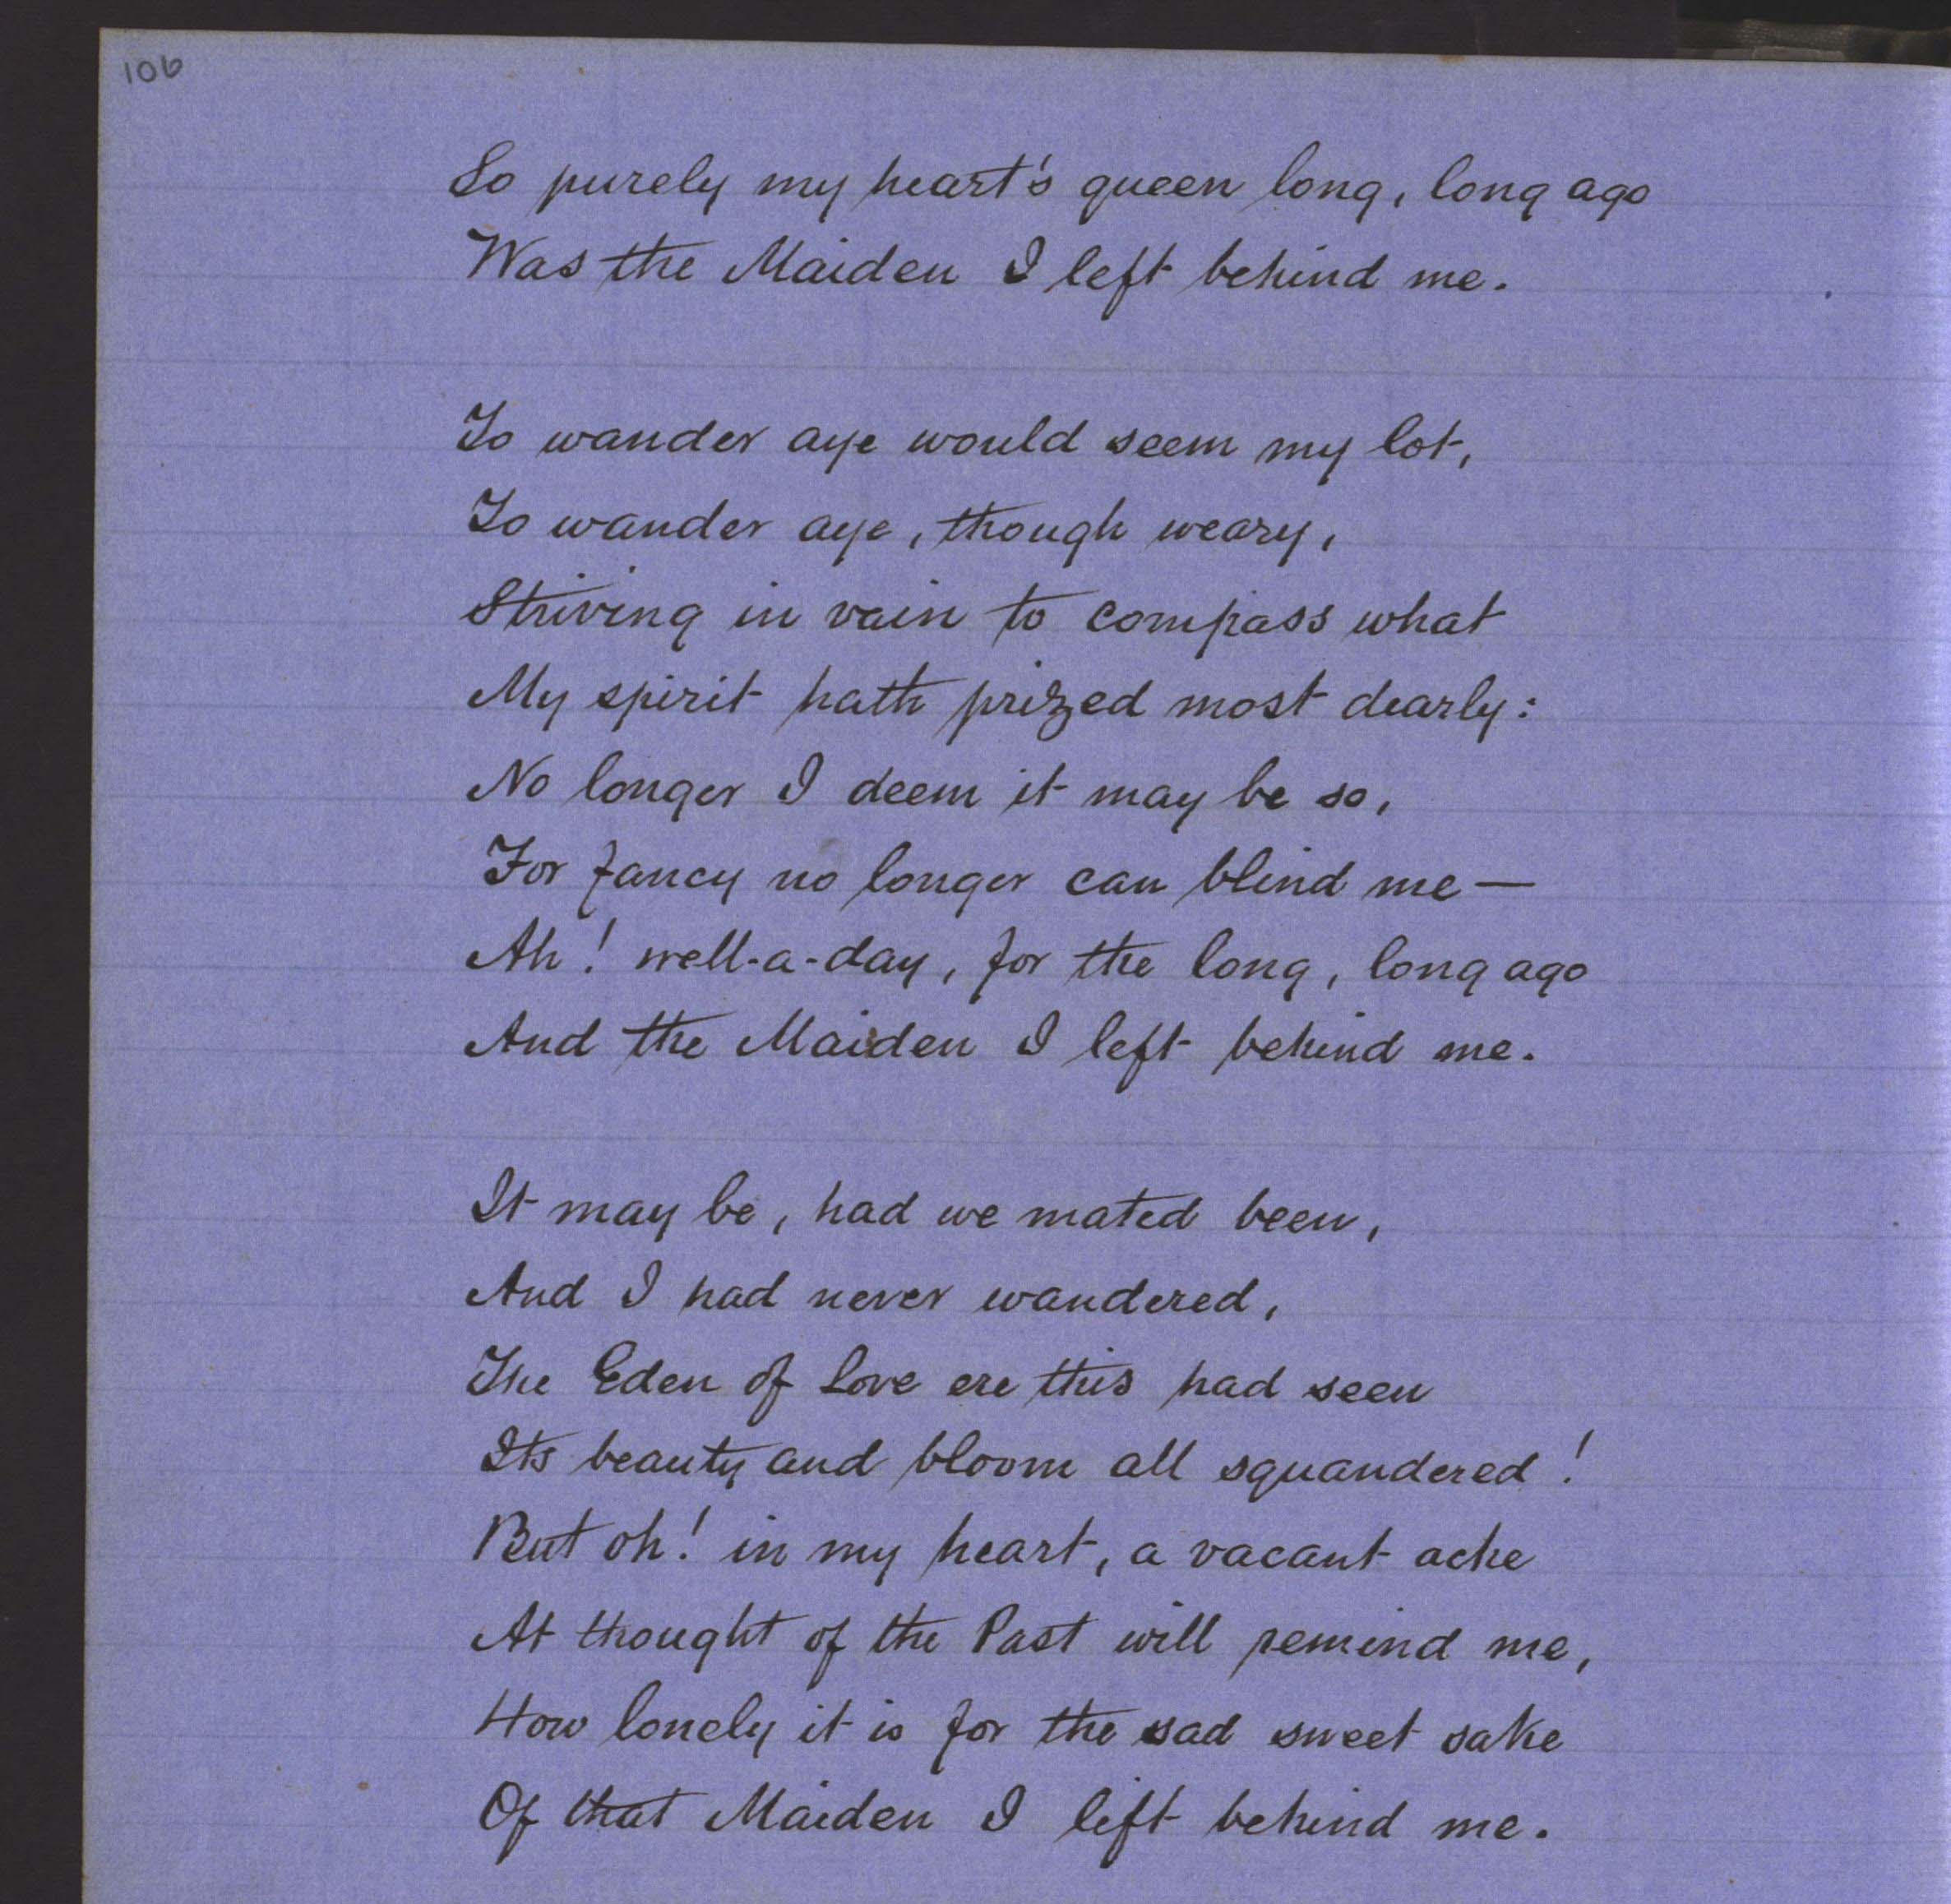 106
So purely my heart's queen long, long ago
Was the Maiden I left behind me.
To wander aye would seem my lot,
To wander aye, though weary,
Striving in vain to compass what
My spirit hath prized most dearly:
No longer I deem it may be so,
For fancy no longer can blind me —
Ah! well-a-day, for the long, long ago
And the Maiden I left behind me.
It may be, had we mated been,
And I had never wandered,
The Eden of Love ere this had seen
Its beauty and bloom all squandered!
But oh! in my heart, a vacant ache
At thought of the Past will remind me,
How lonely it is for the sad sweet sake
Of that Maiden I left behind me.